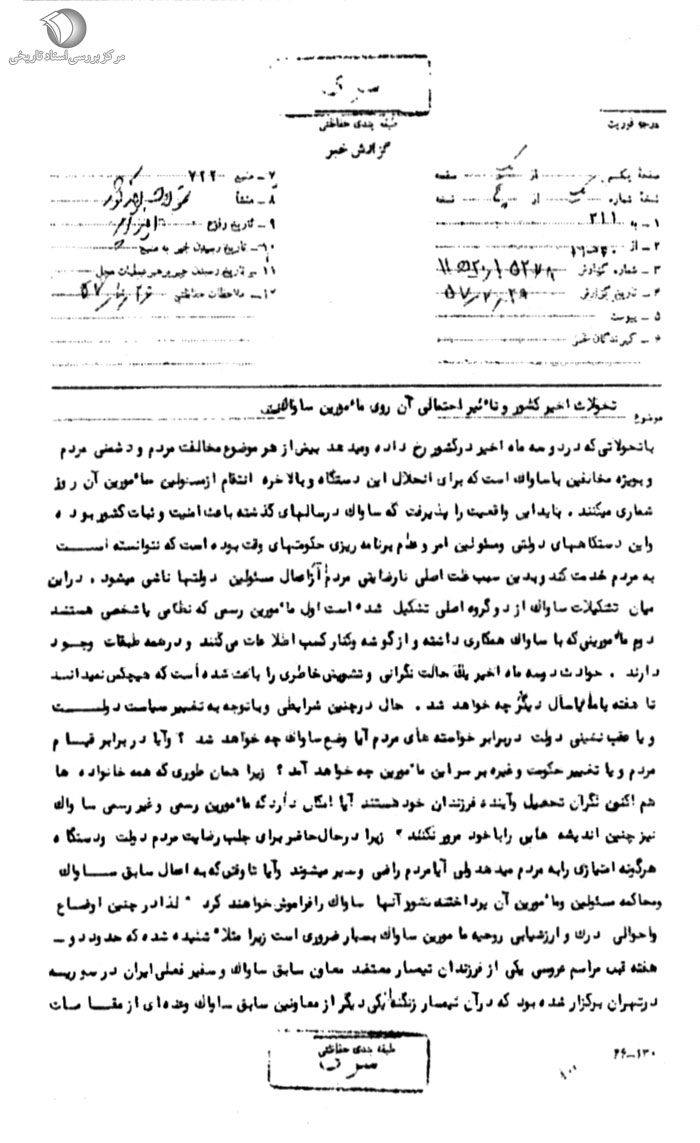 مرکز بررسی اسناد تاریخی
سری
طبقه بندی حفاظتی
گزارش خبر
درجه فوریت
صفحهٔ یکم از یک صفحه
نسخهٔ شماره یک از نسخه
۱ ـ به ۳۱۱
۲ ـ از
۳ ـ شماره گزارش
۴ ـ تاریخ گزارش ۵۷٫۷٫۲۹
۵ ـ پیوست
۶ ـ گیرندگان خبر
۷ ـ منبع ۷۲۲
۸ ـ منشأ
۹ ـ تاریخ وقوع
۱۰ ـ تاریخ رسیدن خبر به منبع
۱۱ ـ تاریخ رسیدن خبر به رهبر عملیات محل
۱۲ ـ ملاحظات حفاظتی
موضوع تحولات اخیر کشور و تاٴثیر احتمالی آن روی ماٴمورین ساواک
با تحولاتی که در دو سه ماه اخیر در کشور رخ داده و میدهد بیش از هر موضوع مخالفت مردم و دشمنی مردم
و بویژه مخالفین با ساواک است که برای انحلال این دستگاه و بالاخره انتقام از مسئولین و ماٴمورین آن روز
شماری میکنند . باید این واقعیت را پذیرفت که ساواک در سالهای گذشته باعث امنیت و ثبات کشور بوده
و این دستگاههای دولتی و مسئولین امر و عدم برنامه ریزی حکومتهای وقت بوده است که نتوانسته است
به مردم خدمت کند و بدین سبب علت اصلی نارضایتی مردم از اعمال مسئولین دولتها ناشی میشود . در این
میان تشکیلات ساواک از دو گروه اصلی تشکیل شده است اول ماٴمورین رسمی که نظامی یا شخصی هستند
دوم ماٴمورینی که با ساواک همکاری داشته و از گوشه و کنار کسب اطلاعات می کنند و در همه طبقات وجود
دارند . حوادث دو سه ماه اخیر یک حالت نگرانی و تشویش خاطری را باعث شده است که هیچکس نمیداند
تا هفته یا ماه یا سال دیگر چه خواهد شد . حال در چنین شرایطی و با توجه به تغییر سیاست دولت
و یا عقب نشینی دولت در برابر خواسته های مردم آیا وضع ساواک چه خواهد شد ؟ و آیا در برابر قیام
مردم و یا تغییر حکومت و غیره بر سر این ماٴمورین چه خواهد آمد ؟ زیرا همان طوری که همه خانواده ها
هم اکنون نگران تحصیل و آینده فرزندان خود هستند آیا امکان دارد که ماٴمورین رسمی و غیر رسمی ساواک
نیز چنین اندیشه هایی را با خود مرور نکنند ؟ زیرا در حال حاضر برای جلب رضایت مردم دولت و دستگاه
هرگونه امتیازی را به مردم میدهد ولی آیا مردم راضی و سیر میشوند و آیا تا وقتی که به اعمال سابق ساواک
و محاکمه مسئولین و ماٴمورین آن پرداخته نشود آنها ساواک را فراموش خواهند کرد ؟ لذا در چنین اوضاع
و احوالی درک و ارزشیابی روحیه مامورین ساواک بسیار ضروری است زیرا مثلاً شنیده شده که حدود دو ـ
هفته قبل مراسم عروسی یکی از فرزندان تیمسار معتضد معاون سابق ساواک و سفیر فعلی ایران در سوریه
در تهران برگزار شده بود که در آن تیمسار زنگنه یکی دیگر از معاونین سابق ساواک و عده ای از مقامات
طبقه بندی حفاظتی
سری
۲۶ــ۱۳۰